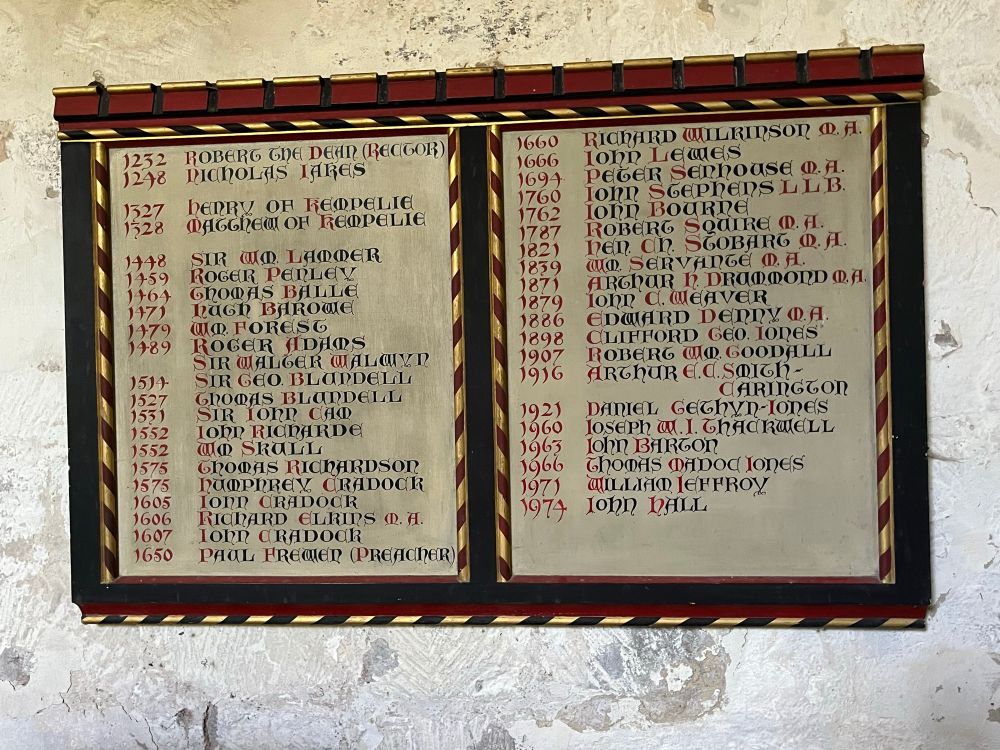 1232 ROBERT THE DEAN (RECTOR)
1248 NICHOLAS IAKES
1327 HENRY OF KEMPELIE
1328 MATTHEW OF KEMPELIE
1448 SIR WM. LAMMER
1459 ROGER PENLEY
1464 THOMAS BALLE
1471 HUGH BAROWE
1479 WM. FOREST
1489 ROGER ADAMS
SIR WALTER WALWYN
1514 SIR GEO. BLUNDELL
1527 THOMAS BLUNDELL
1531 SIR IOHN CAM
1552 IOHN RICHARDE
1552 WM SKULL
1575 THOMAS RICHARDSON
1575 HUMPHREY CRADOCK
1605 IOHN CRADOCK
1606 RICHARD ELKINS M.A.
1607 IOHN CRADOCK
1650 PAUL FREWEN (PREACHER)
1660 RICHARD WILKINSON M.A.
1666 IOHN LEWES
1694 PETER SENHOUSE M.A.
1760 IOHN STEPHENS L.L.B.
1762 IOHN BOURNE
1787 ROBERT SQUIRE M.A.
1821 HEN. CH. STOBART M.A.
1839 WM. SERVANTE M.A.
1871 ARTHUR H. DRUMMOND M.A.
1879 IOHN C. WEAVER
1886 EDWARD DENNY M.A.
1898 CLIFFORD GEO. IONES
1907 ROBERT WM. GOODALL
1916 ARTHUR E.C. SMITH-
CARINGTON
1921 DANIEL GETHYN-IONES
1960 IOSEPH W. I. THACKWELL
1963 IOHN BARTON
1966 THOMAS MADOC IONES
1971 WILLIAM IEFFROY
1974 IOHN HALL